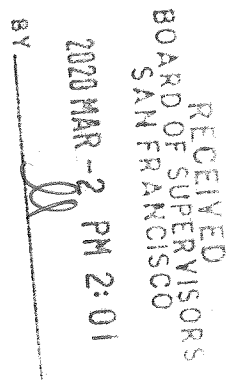 RECEIVED
BOARD OF SUPERVISORS
SAN FRANCISCO
2020 MAR -2 PM 2:01
BY